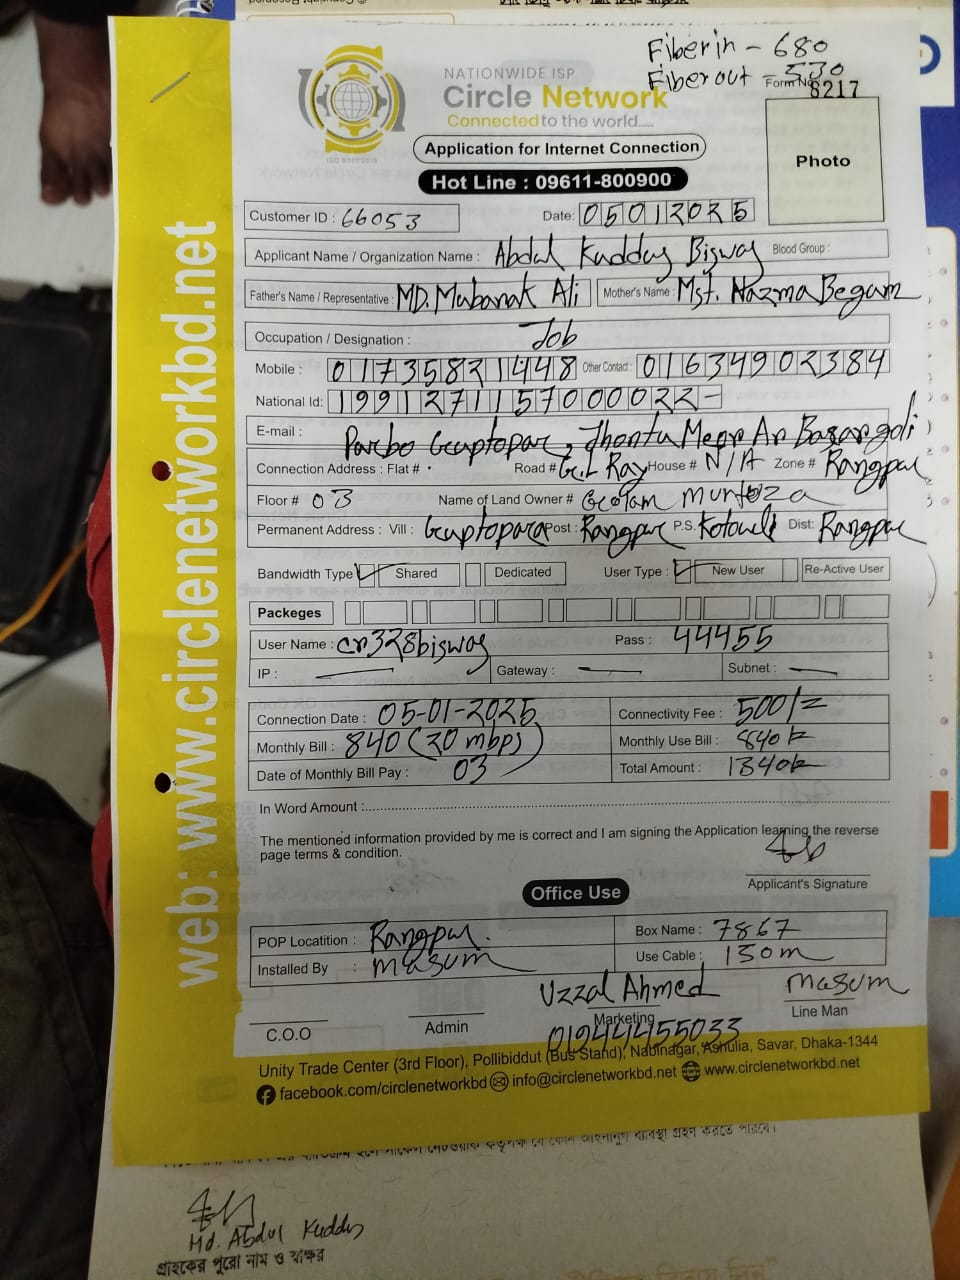 Fiber in - 680
Fiber out - 530
NATIONWIDE ISP
Circle Network
Connected to the world.....
ISO 9001:2015
Form No. 8217
Application for Internet Connection
Photo
Hot Line : 09611-800900
Customer ID : 66053 Date: 05012025
Applicant Name / Organization Name : Abdul Kuddus Biswas Blood Group :
Father's Name / Representative : MD. Mubarak Ali Mother's Name : Mst. Nazma Begum
Occupation / Designation : Job
Mobile : 01735821448 Other Contact : 01634902384
National Id: 19912711570000022-
E-mail :
Parbo Guptopar, Jhontu Mear Ar Basar goli
Connection Address : Flat # Road # G.L Ray House # N/A Zone # Rangpur
Floor # 03 Name of Land Owner # Golam Murtoza
Permanent Address : Vill : Guptopara Post : Rangpur P.S. Kotouali Dist: Rangpur
Bandwidth Type Shared Dedicated User Type : New User Re-Active User
Packeges
User Name : cr328biswas Pass : 44455
IP : — Gateway : — Subnet : —
Connection Date : 05-01-2025 Connectivity Fee : 500/=
Monthly Bill : 840 (20 mbps) Monthly Use Bill : 840/=
Date of Monthly Bill Pay : 03 Total Amount : 1340/=
In Word Amount :
The mentioned information provided by me is correct and I am signing the Application learning the reverse
page terms & condition.
Applicant's Signature
Office Use
POP Locatition : Rangpur. Box Name : 7867
Installed By : Masum Use Cable : 150m
Uzzal Ahmed Masum
C.O.O Admin Marketing Line Man
01944455033
Unity Trade Center (3rd Floor), Pollibiddut (Bus Stand), Nabinagar, Ashulia, Savar, Dhaka-1344
facebook.com/circlenetworkbd info@circlenetworkbd.net www.circlenetworkbd.net
web: www.circlenetworkbd.net
Md. Abdul Kuddus
গ্রাহকের পুরো নাম ও স্বাক্ষর